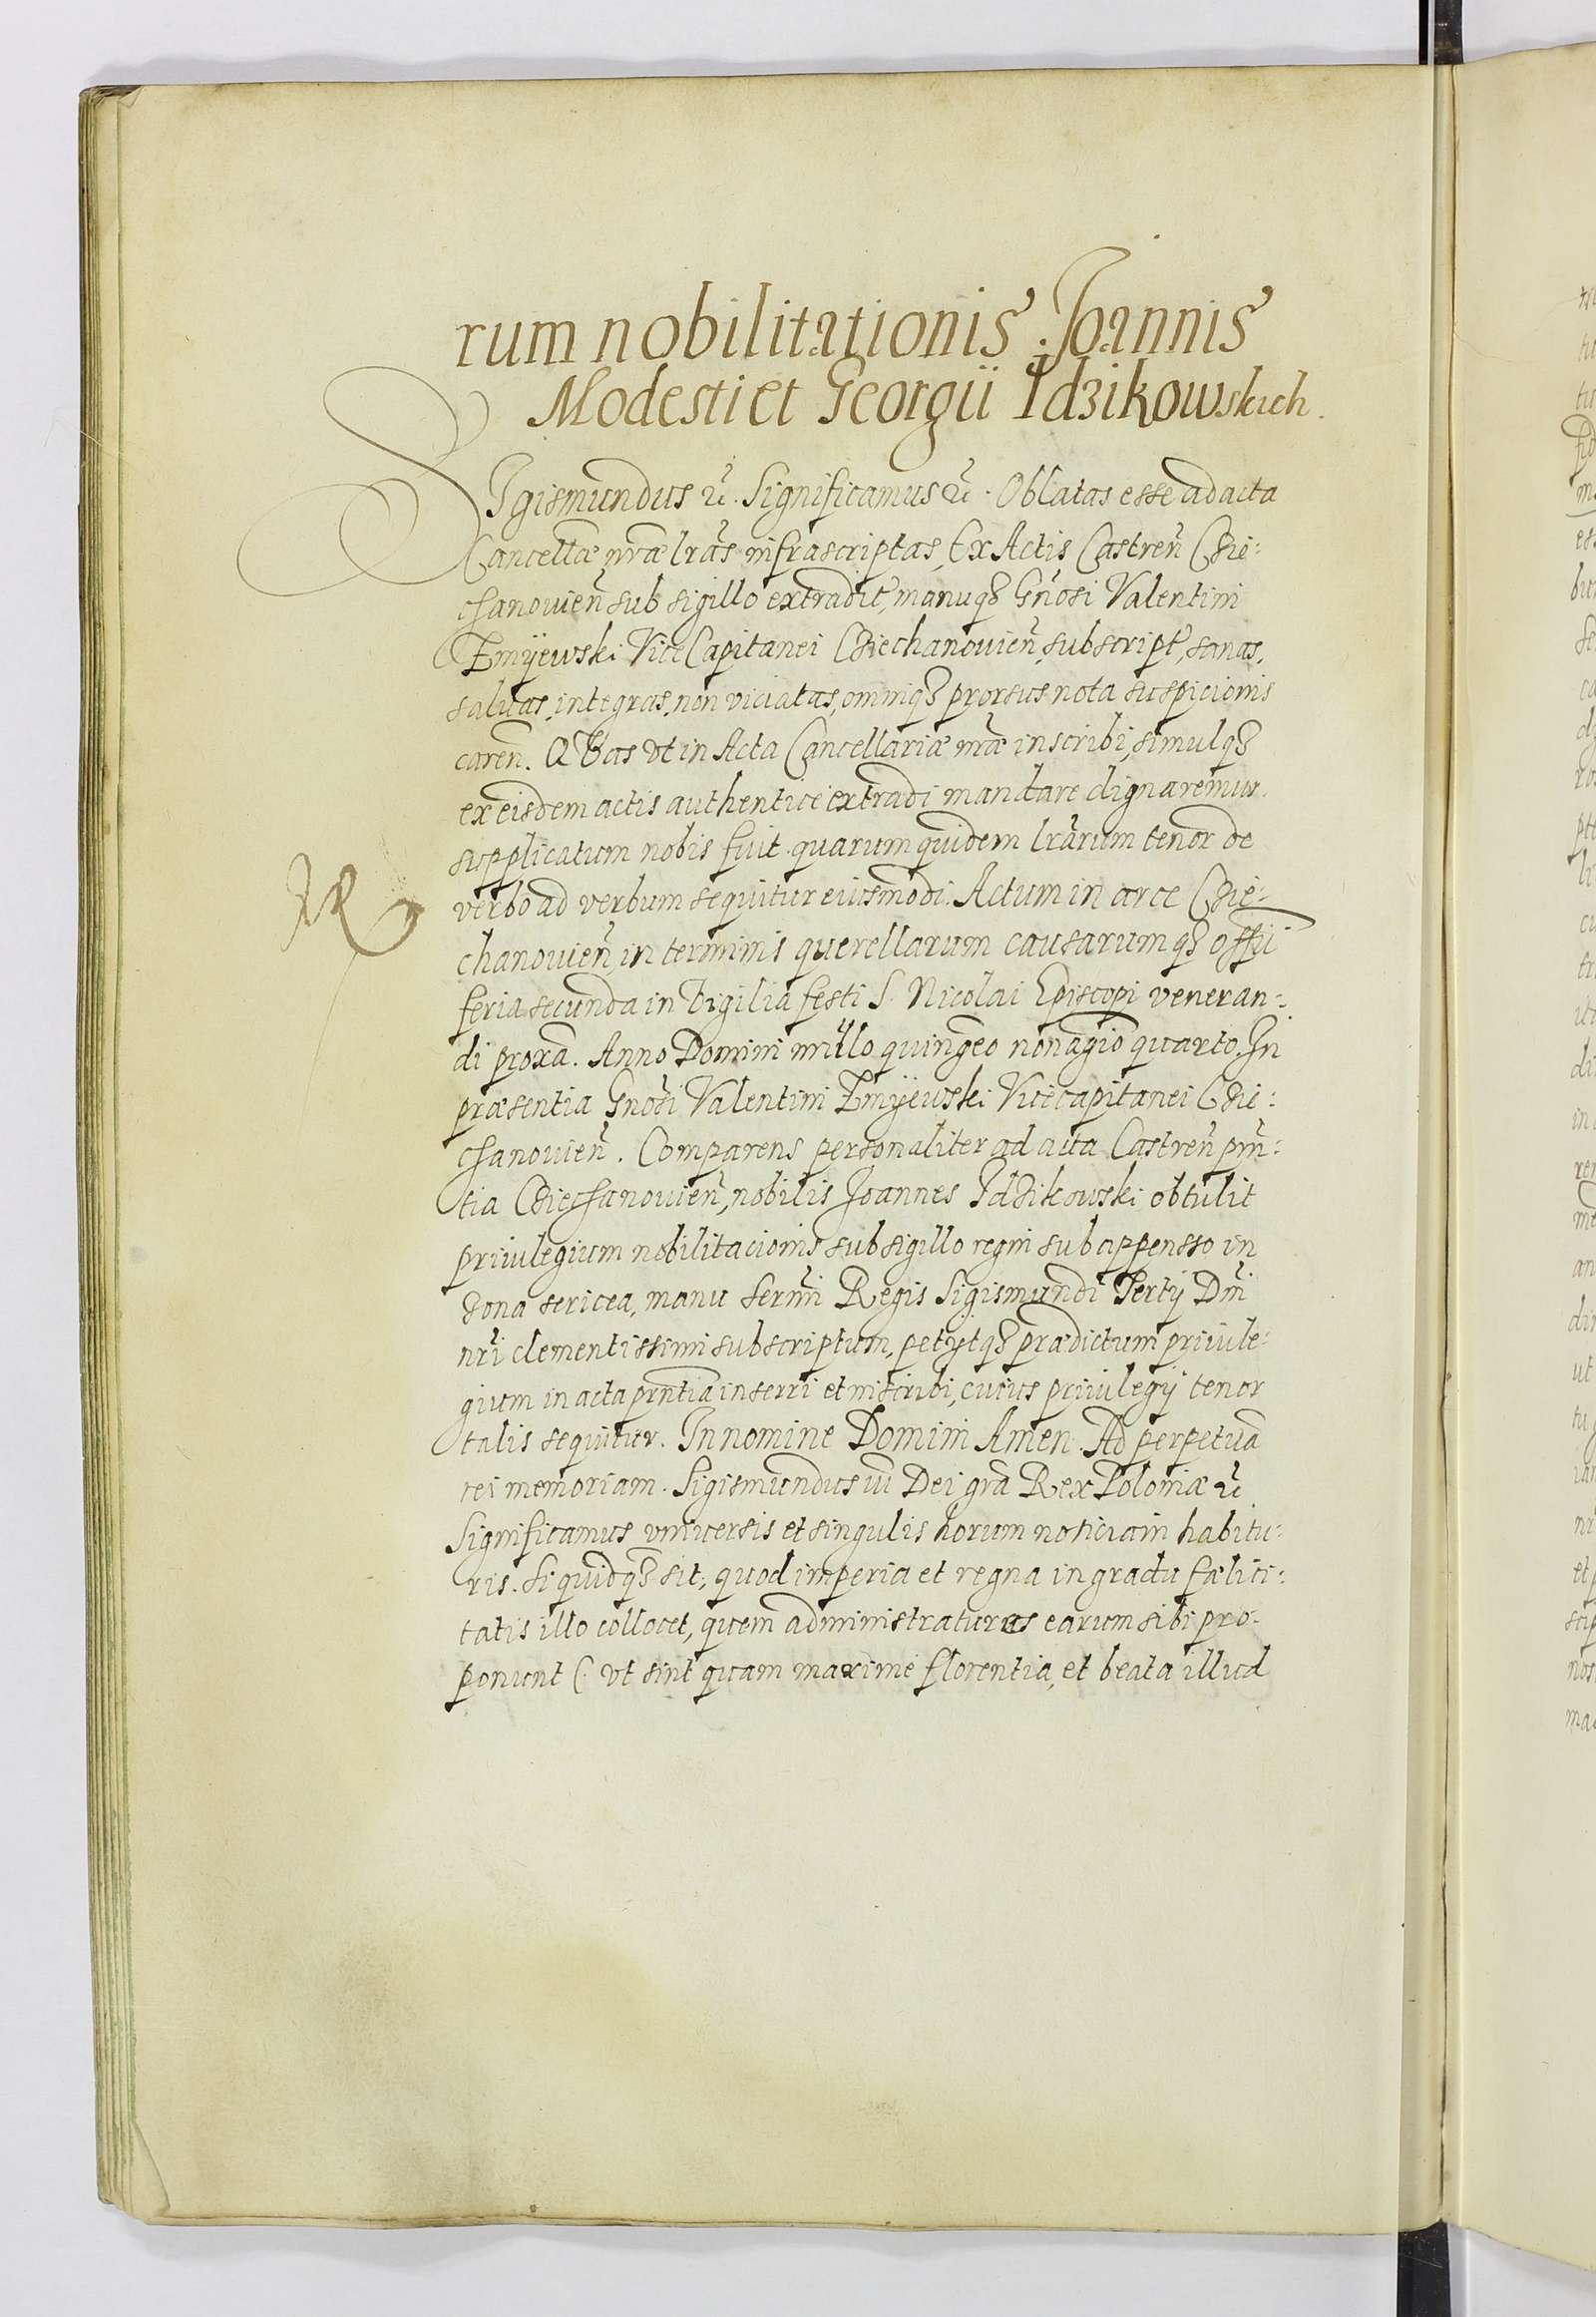 rum nobilitationis Joannis
Modesti et Georgii Idzikowskich.
SIgismundus etc. Significamus etc. Oblatas esse ad acta
Cancellæ nr̃æ lr̃as infrascriptas, Ex Actis Castreñ Czie:
chanovieñ sub sigillo extradit, manuq3 Gñosi Valentini
Zmijewski Vice Capitanei Cziechanovieñ, subscript, sanas,
salvas, integras, non viciatas, omniq3 prorsus nota suspicionis
careñ. Q Bas vt in Acta Cancellariæ nr̃æ inscribi, simulq3
ex eisdem actis authentice extradi mandare dignaremur,
supplicatum nobis fuit. quarum quidem lr̃arum tenor de
verbo ad verbum sequitur eiusmodi. Actum in arce Czie-
chanovieñ, in terminis querellarum causarumq3 officii
feria secunda in Vigilia festi S. Nicolai Episcopi veneran-
di proxã. Anno Domini millo quingeo nonagio quarto. In
præsentia Gnõsi Valentini Zmijewski Vicecapitanei Czie:
chanovieñ. Comparens personaliter ad acta Castreñ pñ:
tia Cziechanovieñ, nobilis Joannes Idzikowski obtulit
privilegium nobilitacionis sub sigillo regni subappensso in
zona sericea, manu Serm̃i Regis Sigismundi Tertij Dñi
nr̃i clementissimi subscriptum, petijtq3 prædictum privile:
gium in acta prñtia inserri et inscribi, cuius privilegij tenor
talis sequitur. In nomine Domini Amen. Ad perpetuã
rei memoriam. Sigismundus iii Dei grã Rex Poloniæ etc
Significamus vniversis et singulis horum noticiam habitu:
ris. Si quidq3 sit, quod imperia et regna in gradu fælici:
tatis illo collocet, quem administratures earum sibi pro-
ponunt (: vt sint quam maxime florentia, et beata illud